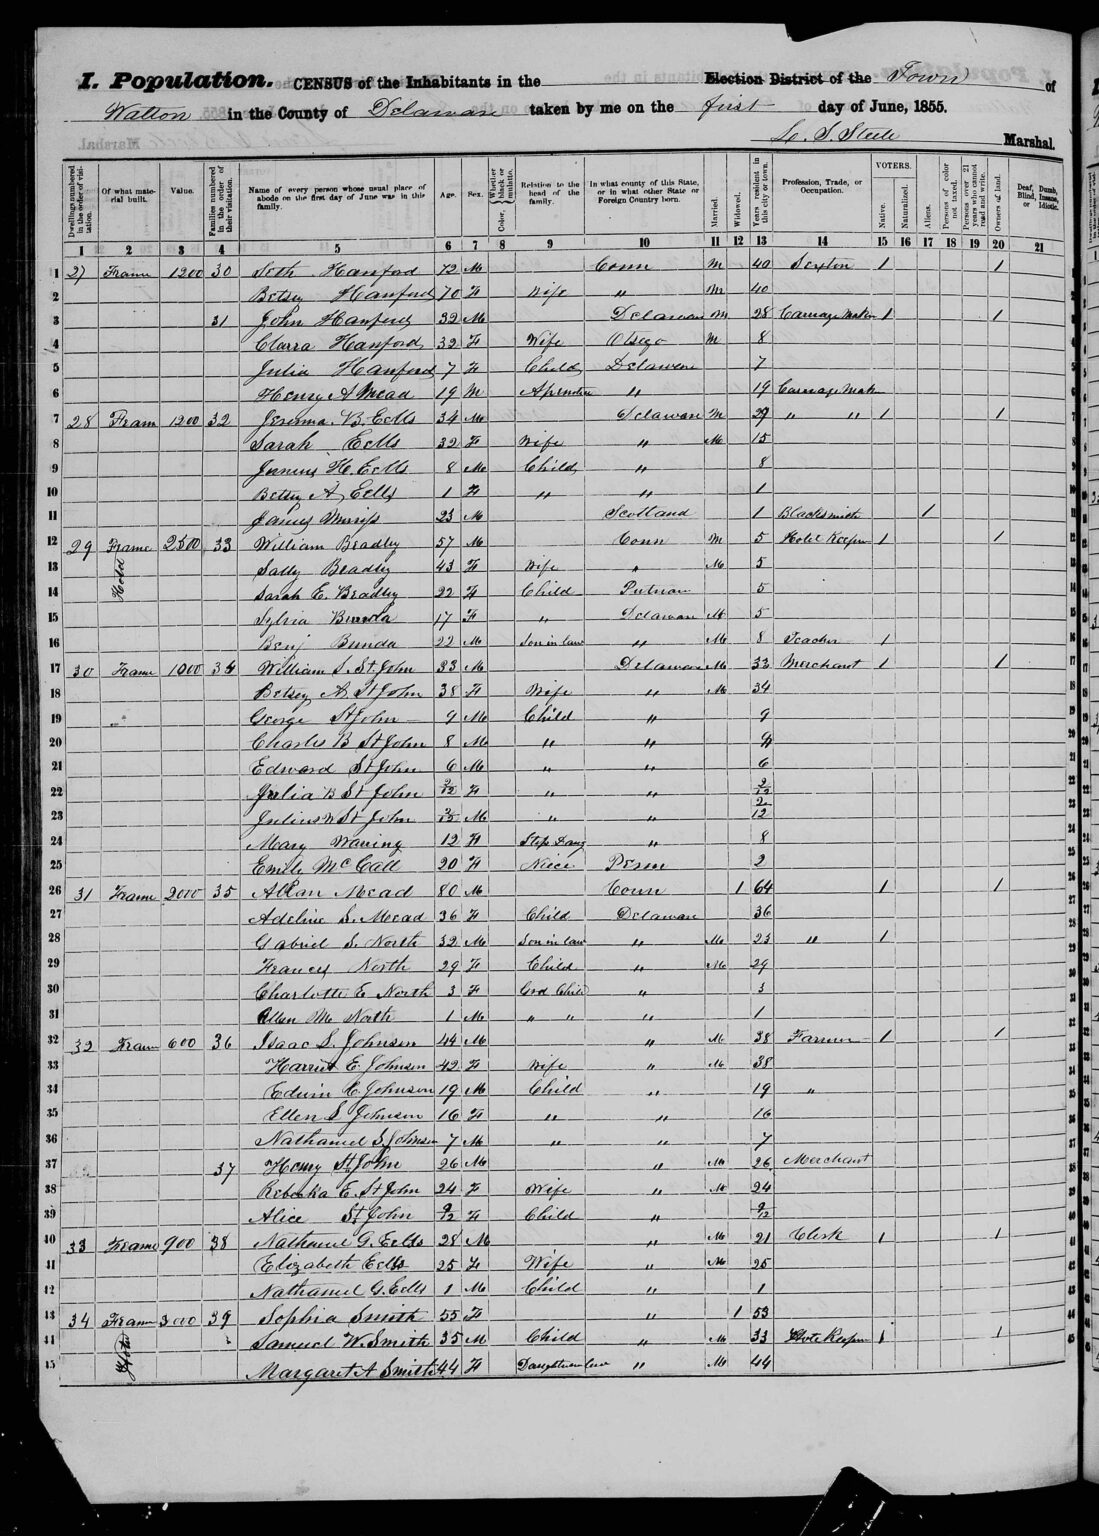 I. Population. CENSUS of the Inhabitants in the Election District of the Town of
Walton in the County of Delaware taken by me on the first day of June, 1855.
S. Steele Marshal.
Dwellings numbered in the order of visitation. Of what material built. Value. Families numbered in the order of their visitation. Name of every person whose usual place of abode on the first day of June was in this family. Age. Sex. Color, Whether black or mulatto. Relation to the head of the family. In what county of this State, or in what other State or Foreign Country born. Married. Widowed. Years resident in this city or town. Profession, Trade, or Occupation. VOTERS. Native. Naturalized. Aliens. Persons of color not taxed. Persons over 21 years who cannot read and write. Owners of land. Deaf, Dumb, Blind, Insane, or Idiotic.
1 2 3 4 5 6 7 8 9 10 11 12 13 14 15 16 17 18 19 20 21
1 27 Frame 1200 30 Seth Hanford 72 M Conn M 40 Sexton 1 1
2 Betsey Hanford 70 F Wife " M 40
3 31 John Hanford 32 M Delaware M 28 Carriage Maker 1 1
4 Clarra Hanford 32 F Wife Otsego M 8
5 Julia Hanford 7 F Child Delaware 7
6 Henry A Mead 19 M " 19 Carriage Maker
7 28 Fram 1200 32 B. Eells 34 M Delaware M 29 " " 1 1
8 Sarah Eells 32 F Wife " M 15
9 H. Eells 8 M Child " 8
10 Betsey A Eells 1 F " " 1
11 James 23 M Scotland 1 Blacksmith 1
12 29 Frame 2500 33 William Bradley 57 M Conn M 5 Hotel Keeper 1 1
13 Hotel Sally Bradley 43 F Wife " M 5
14 Sarah E. Bradley 22 F Child Putnam 5
15 Sylvia 17 F " Delaware M 5
16 Benj 22 M Son in law " M 8 Teacher 1
17 30 Frame 1000 34 William S. St John 33 M Delaware M 33 Merchant 1 1
18 Betsey St John 38 F Wife " M 34
19 George St John 9 M Child " 9
20 Charles B St John 8 M " " 9
21 Edward St John 6 M " " 6
22 Julia B St John 2/12 F " " 2/12
23 Julius St John 2/12 M " " 2/12
24 Mary Waring 12 F Step Daug " 8
25 Emily McCall 20 F Neice Penn 2
26 31 Frame 2000 35 Allan Mead 80 M Conn 1 64 1 1
27 Adeline S. Mead 36 F Child Delaware 36
28 Gabriel S. North 32 M Son in law " M 23 " 1
29 Frances North 29 F Child " M 29
30 Charlotte E North 3 F Grd Child " 3
31 Allen M North 1 M " " " 1
32 32 Fram 600 36 Isaac S. Johnson 44 M " M 38 Farmer 1 1
33 Harriet E Johnson 42 F Wife " M 38
34 Edwin C Johnson 19 M Child " 19 "
35 Ellen S Johnson 16 F " " 16
36 Nathaniel S Johnson 7 M " " 7
37 37 Henry St John 26 M " M 26 Merchant
38 Rebecka E. St John 24 F Wife " M 24
39 Alice St John 9/12 F Child " 9/12
40 33 Frame 900 38 Nathaniel G. Eells 28 M " M 21 Clerk 1 1
41 Elizabeth Eells 25 F Wife " M 25
42 Nathaniel G. Eells 1 M Child " 1
43 34 Frame 3000 39 Sophia Smith 55 F " 1 53
44 Hotel Samuel W. Smith 35 M Child " M 33 Hotel Keeper 1 1
45 Margaret A Smith 44 F Daughter in law " M 44